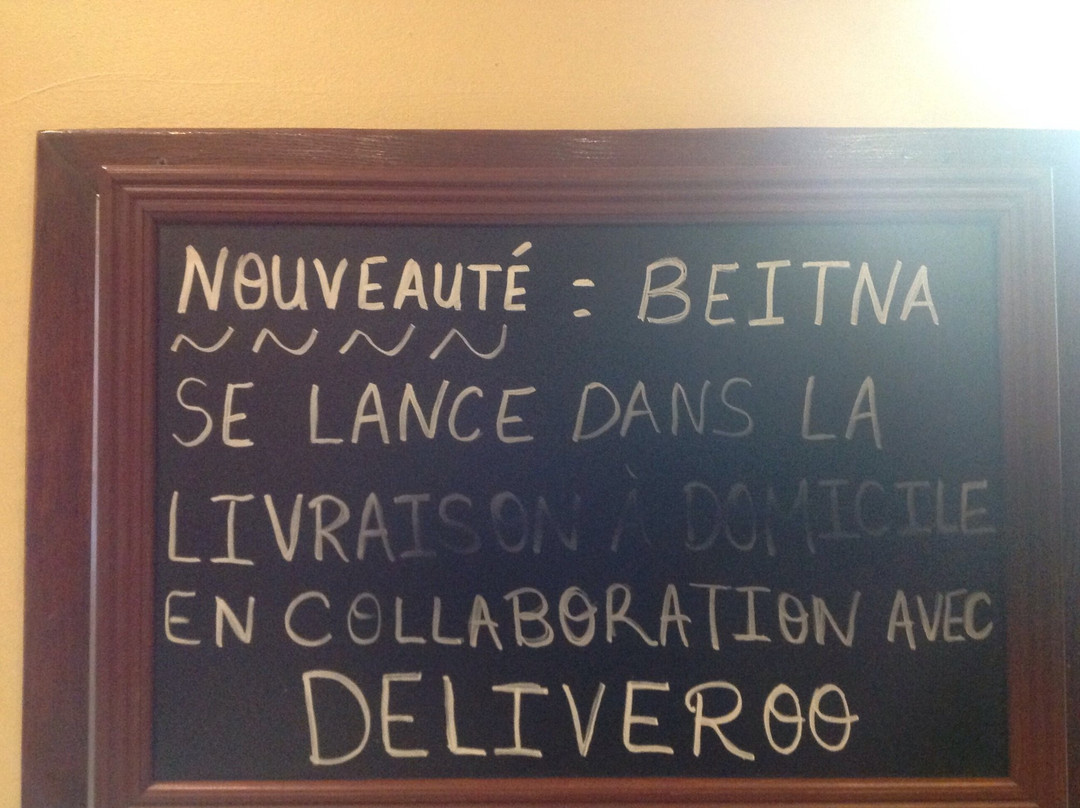 NOUVEAUTÉ : BEITNA
SE LANCE DANS LA
LIVRAISON À DOMICILE
EN COLLABORATION AVEC
DELIVEROO